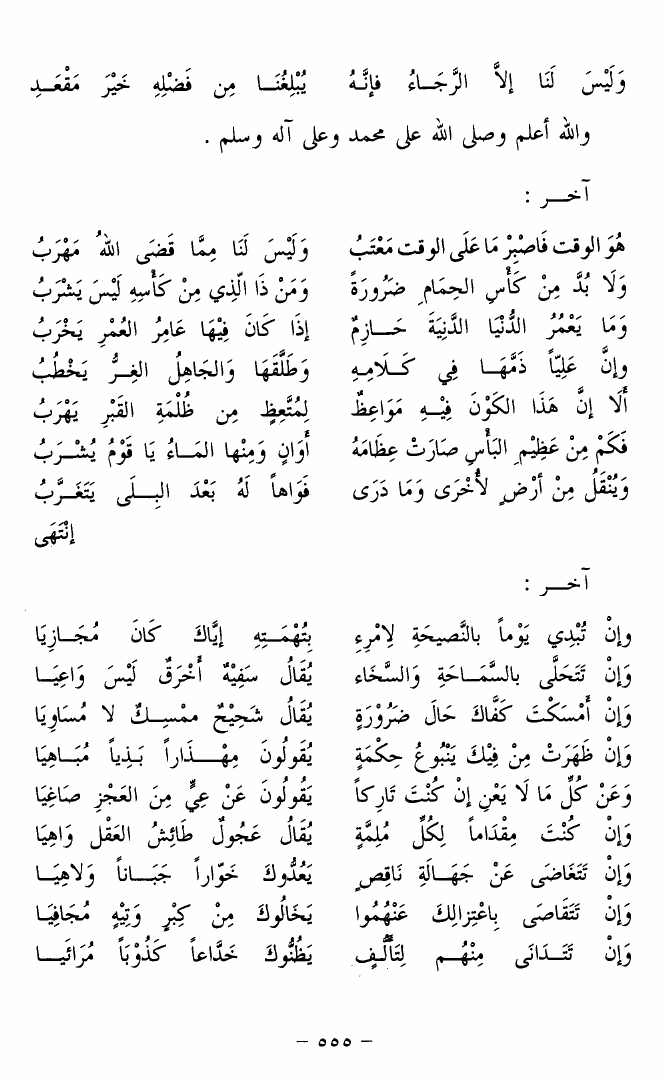 وَلَيْسَ لَنَا إلاَّ الرَّجَــاءُ فإنَّــهُ يُبْلِغُنَــا مِن فَضْلِهِ خَيْرَ مَقْعَــدِ
والله أعلم وصلى الله على محمد وعلى آله وسلم .
آخــر :
هُوَ الوقت فَاصْبِرْ مَا عَلَى الوقت مَعْتَبُ وَلَيْسَ لَنَا مِمَّا قَضَى اللهُ مَهْرَبُ
وَلَا بُدَّ مِنْ كَأْسِ الحِمَامِ ضَرُورَةً وَمَنْ ذَا الَّذِي مِنْ كَأْسِهِ لَيْسَ يَشْرَبُ
وَمَا يَعْمُرُ الدُّنْيَا الدَّنِيَةَ حَــازِمٌ إذَا كَانَ فِيْهَا عَامِرُ العُمْرِ يَخْرَبُ
وإنَّ عَلِيّاً ذَمَّهَــا فِي كَــلَامِــهِ وَطَلَّقَهَا وَالجَاهِلُ الغِرُّ يَخْطُبُ
أَلَا إنَّ هَذَا الكَوْنَ فِيْــهِ مَوَاعِظٌ لِمُتَّعِظٍ مِن ظُلْمَةِ القَبْرِ يَهْرَبُ
فَكَمْ مِنْ عَظِيْمِ البَأْسِ صَارَتْ عِظَامَهُ أَوَانٍ وَمِنْها المَــاءُ يَا قَوْمُ يُشْــرَبُ
وَيُنْقَلُ مِنْ أرْضٍ لأُخْرَى وَمَا دَرَى فَوَاهاً لَهُ بَعْدَ البِــلَى يَتَغَــرَّبُ
إنْتَهَى
آخــر :
وإنْ تُبْدِي يَوْماً بالنَّصِيحَةِ لِامْرِءِ بِتُهْمَتِهِ إيَّاكَ كَانَ مُجَــازِيَا
وَإنْ تَتَحَلَّى بالسَّمَـاحَةِ وَالسَّخَاء يُقَالُ سَفِيْهٌ أَخْرَقٌ لَيْسَ وَاعِيَــا
وَإنْ أَمْسَكَتْ كَفَّاكَ حَالَ ضَرُوْرَةٍ يُقَالُ شَحِيْحٌ ممْسِــكٌ لا مُسَاوِيَا
وَإنْ ظَهَرَتْ مِنْ فِيْكَ يَنْبُوعُ حِكْمَةٍ يُقُولُونَ مِهْــذَاراً بَـذِياً مُبَـاهِيَا
وَعَنْ كُلِّ مَا لَا يَعْنِ إنْ كُنْتَ تَارِكاً يَقُولُونَ عَنْ عِيٍّ مِنَ العَجْزِ صَاغِيَا
وَإنْ كُنْتَ مِقْدَاماً لِكُلِّ مُلِمَّةٍ يُقَالُ عَجُولٌ طَائِشُ العَقْلِ وَاهِيَا
وَإنْ تَتَغَاضَى عَنْ جَهَـالَةِ نَاقِصٍ يَعُدُّوكَ خَوَّاراً جَبَـاناً وَلَاهِيَــا
وَإنْ تَتَقَاصَى بِاعْتِزالِكَ عَنْهُمُوا يَخَالُوكَ مِنْ كِبْرٍ وَتِيْهٍ مُجَافِيَــا
وَإنْ تَتَــدَانَى مِنْهُــم لِتَأَلُّــفٍ يَظُنُّوكَ خَدَّاعاً كَذُوْبَاً مُرَائَيَــا
– ٥٥٥ –